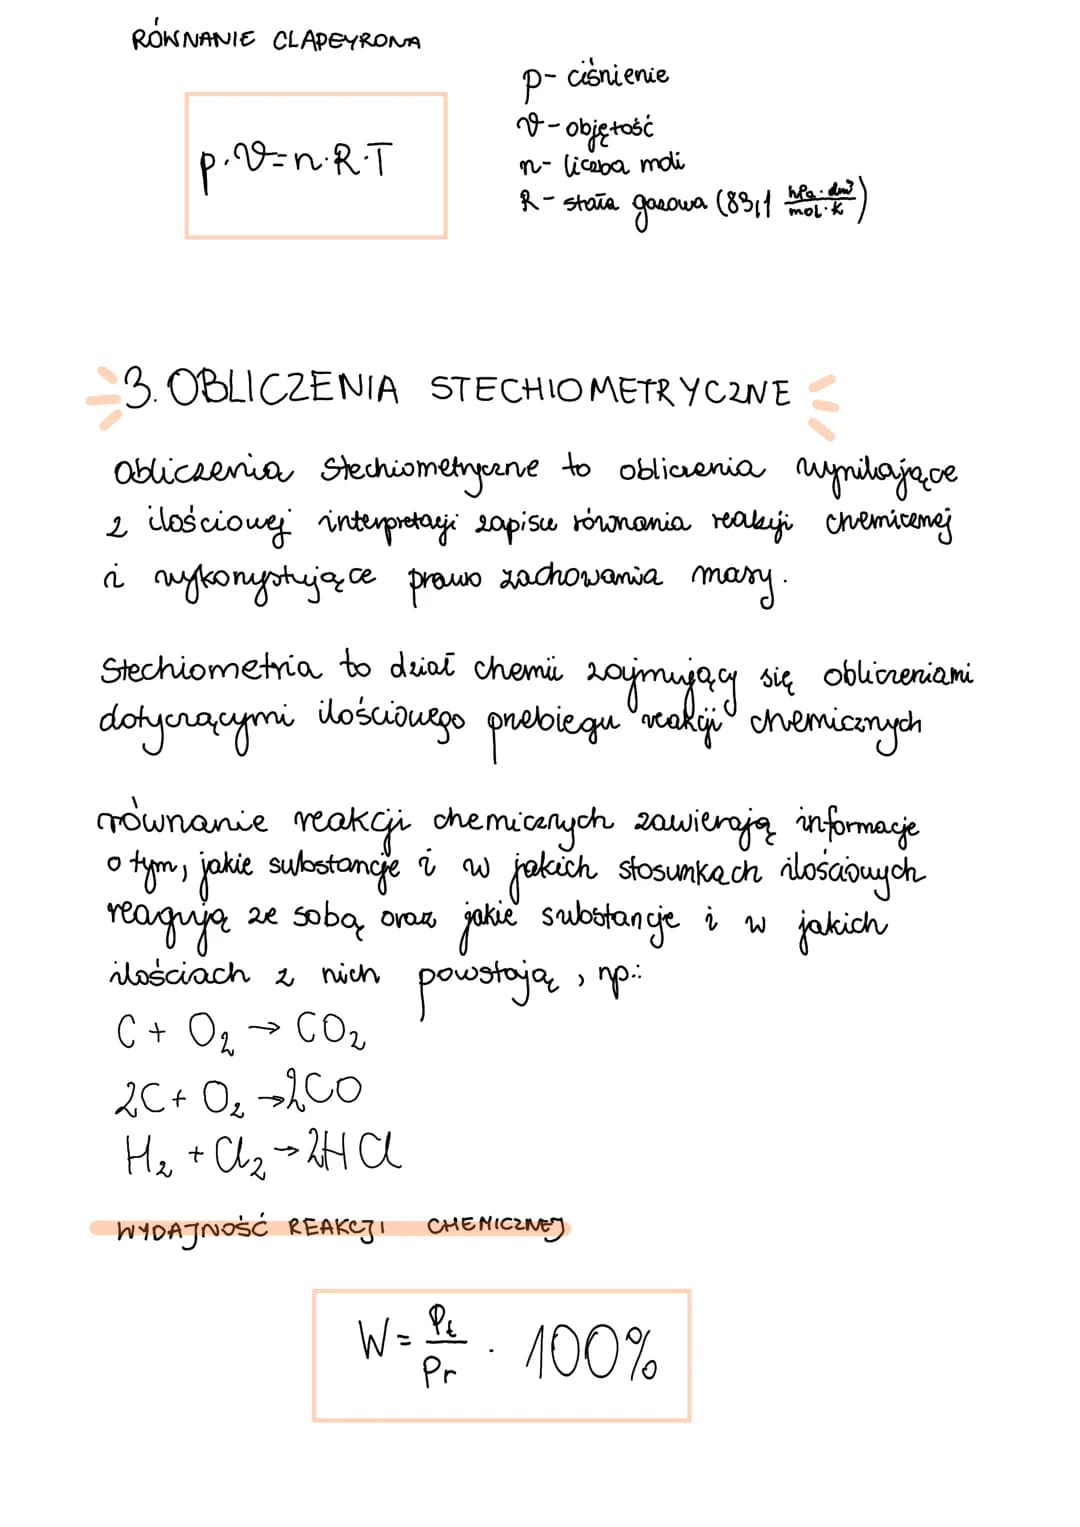 RÓWNANIE CLAPEYRONA
p·V=n·R·T
p- ciśnienie
V- objętość
n- liczba moli
R- stała gazowa (83,1 hPa·dm³/mol·K)
3. OBLICZENIA STECHIOMETRYCZNE
obliczenia stechiometryczne to obliczenia wynikające
z ilościowej interpretacji zapisu równania reakcji chemicznej
i wykorzystujące prawo zachowania masy.
Stechiometria to dział chemii zajmujący się obliczeniami
dotyczącymi ilościowego przebiegu reakcji chemicznych
równanie reakcji chemicznych zawierają informacje
o tym, jakie substancje i w jakich stosunkach ilościowych
reagują ze sobą oraz jakie substancje i w jakich
ilościach z nich powstają, np.:
C + O₂ → CO₂
2C + O₂ → 2CO
H₂ + Cl₂ → 2HCl
WYDAJNOŚĆ REAKCJI CHEMICZNEJ
W = Pt/Pr · 100%